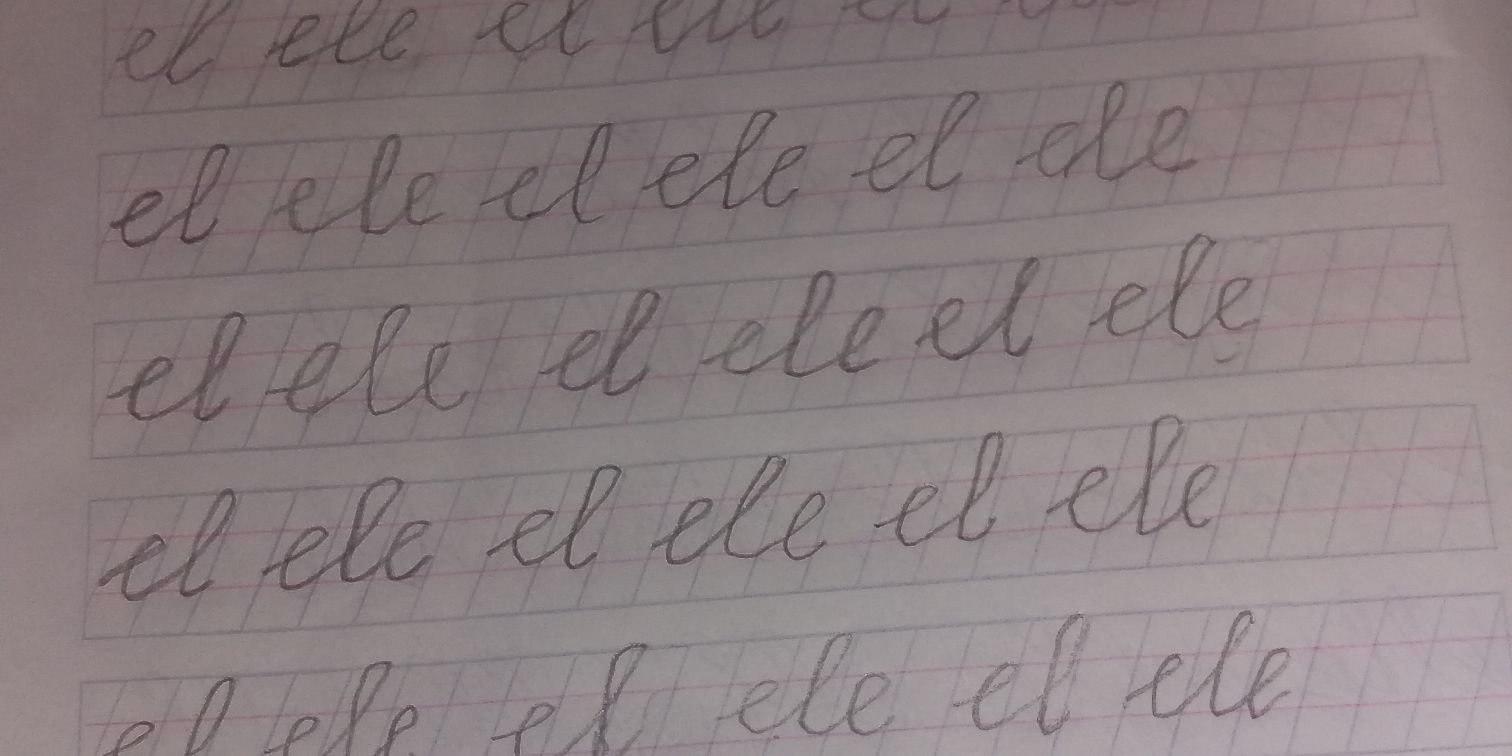 el ele el ele el
el ele el ele el ele
el ele el ele el ele
el ele el ele el ele
el ele el ele el ele